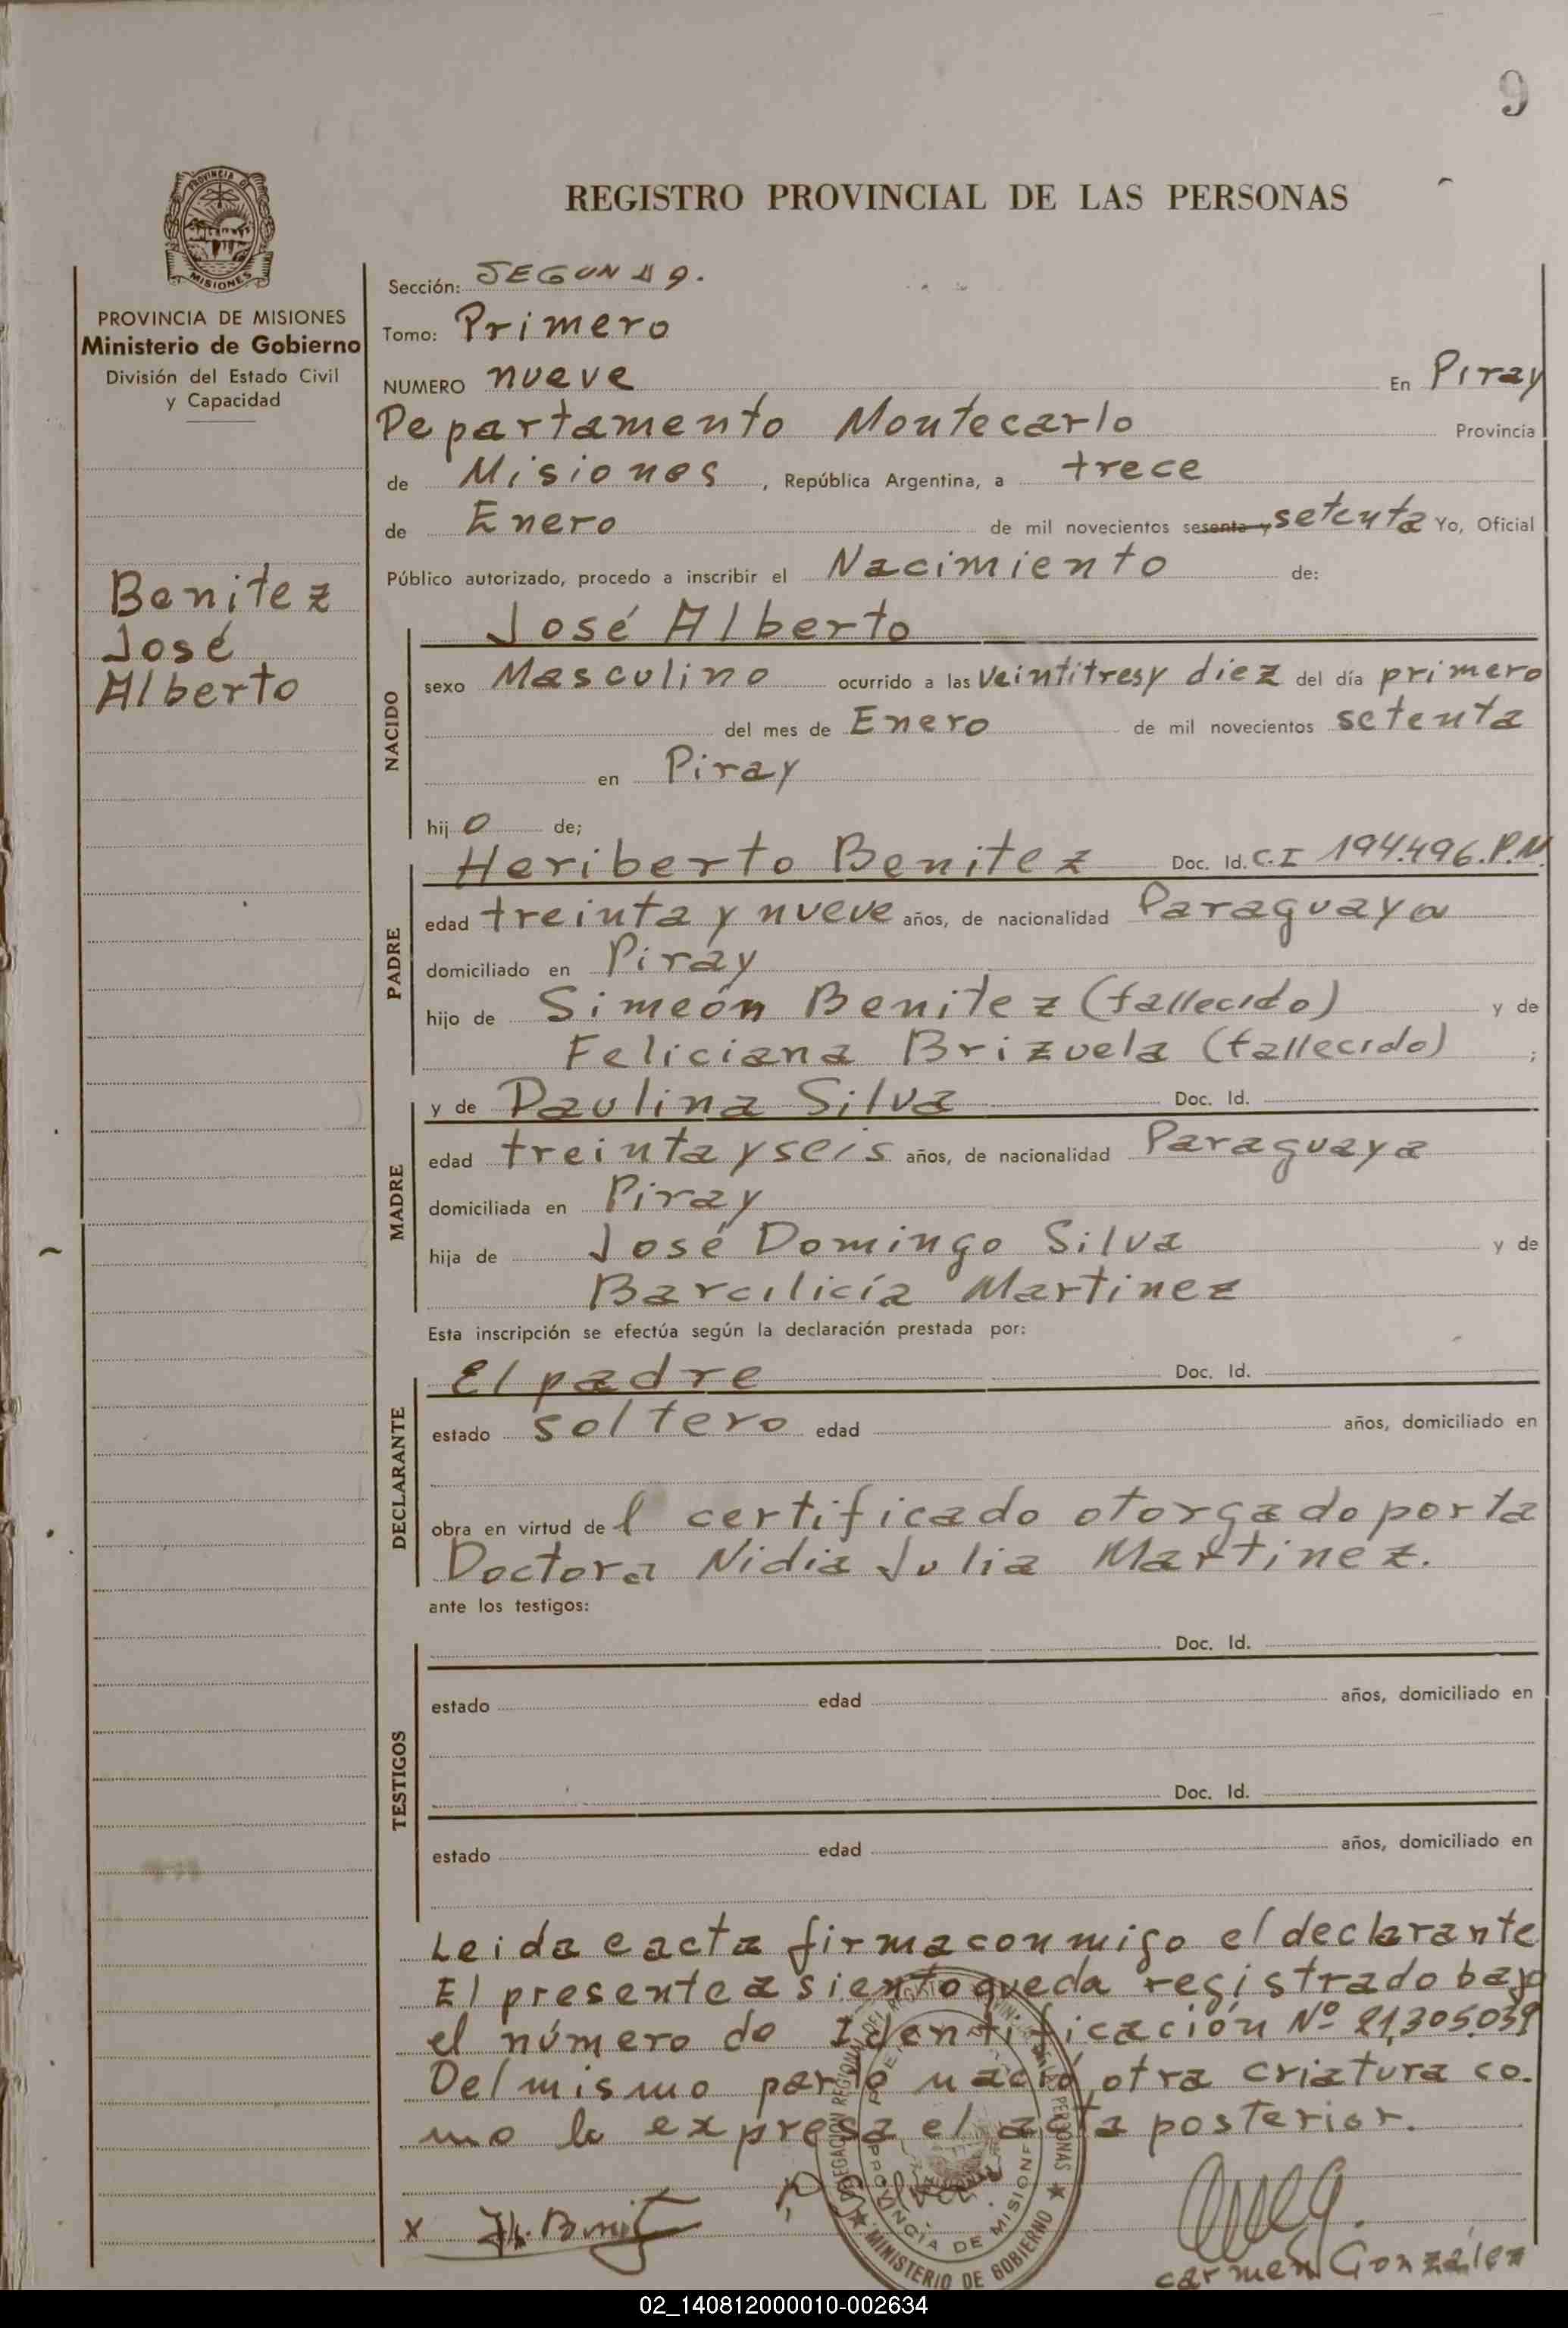 9
PROVINCIA DE
MISIONES
REGISTRO PROVINCIAL DE LAS PERSONAS
PROVINCIA DE MISIONES
Ministerio de Gobierno
División del Estado Civil
y Capacidad
Benitez
José
Alberto
Sección: SEGUNDA.
Tomo: Primero
NUMERO nueve En Piray
Departamento Montecarlo Provincia
de Misiones, República Argentina, a trece
de Enero de mil novecientos sesenta y setenta Yo, Oficial
Público autorizado, procedo a inscribir el Nacimiento de:
NACIDO
José Alberto
sexo Masculino ocurrido a las veintitres y diez del día primero
del mes de Enero de mil novecientos setenta
en Piray
hijo de;
PADRE
Heriberto Benitez Doc. Id. C.I 194.496.P.M.
edad treinta y nueve años, de nacionalidad Paraguaya
domiciliado en Piray
hijo de Simeón Benitez (fallecido) y de
Feliciana Brizuela (fallecido) ;
MADRE
y de Paulina Silva Doc. Id.
edad treinta y seis años, de nacionalidad Paraguaya
domiciliada en Piray
hija de José Domingo Silva y de
Barcilicía Martinez
Esta inscripción se efectúa según la declaración prestada por:
DECLARANTE
El padre Doc. Id.
estado soltero edad años, domiciliado en
obra en virtud del certificado otorgado por la
Doctora Nidia Julia Martinez.
ante los testigos:
TESTIGOS
Doc. Id.
estado edad años, domiciliado en
Doc. Id.
estado edad años, domiciliado en
Leida e acta firma conmigo el declarante
El presente asiento queda registrado bajo
el número de Identificación Nº 21,305.039
Del mismo parto nació otra criatura co.
mo lo expresa el acta posterior.
PROVINCIA DE MISIONES
MINISTERIO DE GOBIERNO
x H. Benitez
carmen González
02_140812000010-002634